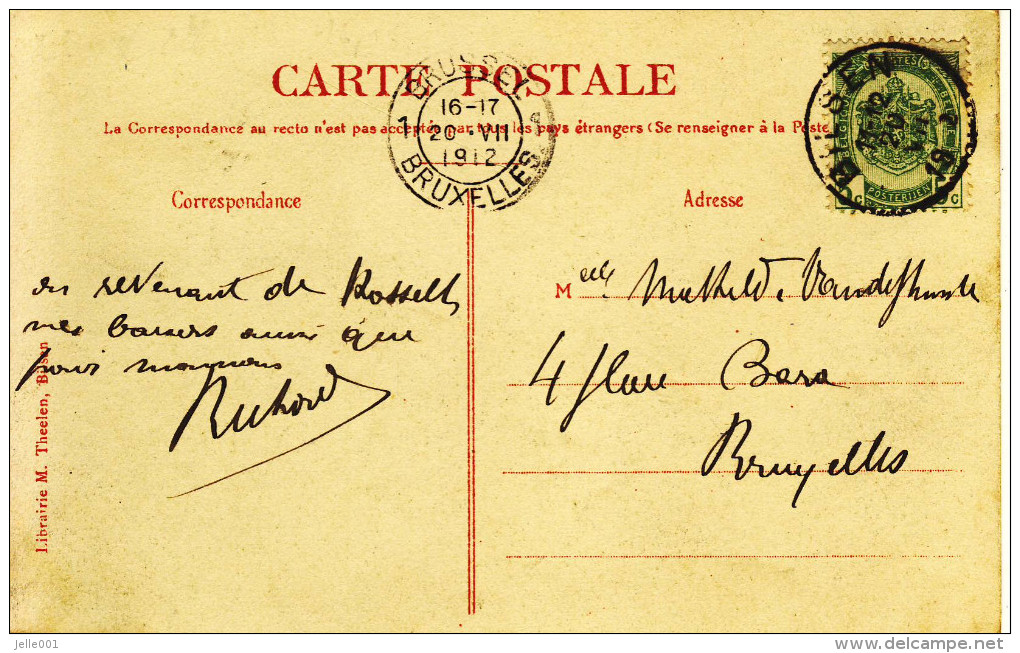 CARTE POSTALE
La Correspondance au recto n'est pas acceptée par tous les pays étrangers (Se renseigner à la Poste
BRUSSEL
16-17
1 20-VII
1912
BRUXELLES
BILSEN
12
20
19 12
POSTERIJEN
Correspondance
Adresse
en revenant de Rosselt
mes baisers ainsi que
pour maman
Richard
Melle Mathilde
4 place Bara
Bruxelles
Librairie M. Theelen, Bilsen
jelle001
www.delcampe.net